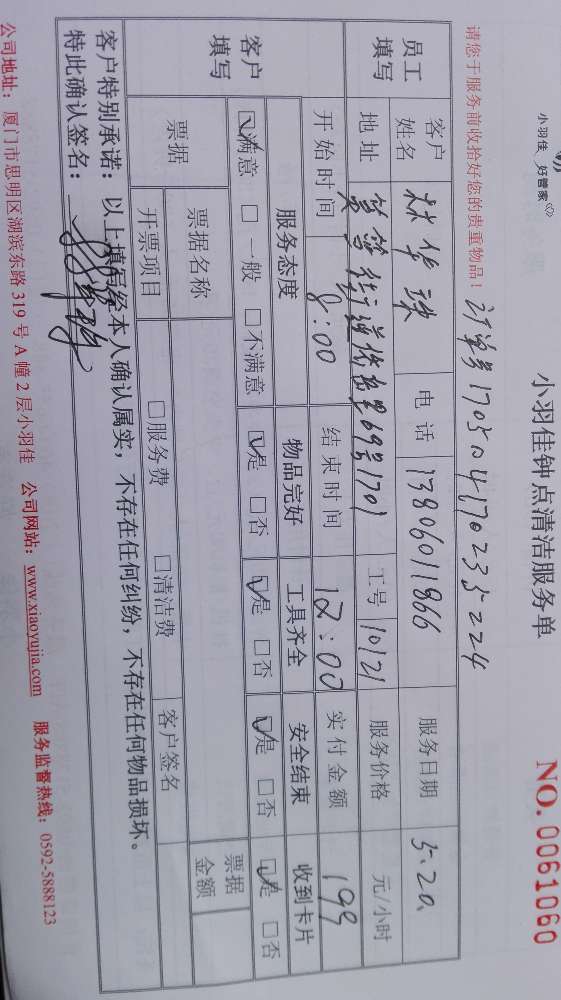 小羽佳 好管家
小羽佳钟点清洁服务单
NO.0061060
请您于服务前收拾好您的贵重物品！ 订单号1705041702352 24
员工填写 客户姓名 林华珠 电话 13806011866 服务日期 5.20
地址 筼筜街道 69号1701 工号 10121 服务价格 元/小时
开始时间 8:00 结束时间 12:00 实付金额 199
客户填写 服务态度 物品完好 工具齐全 安全结束 收到卡片
☑满意 □一般 □不满意 ☑是 □否 ☑是 □否 ☑是 □否 ☑是 □否
票据 票据名称 票据金额
开票项目 □服务费 □清洁费 客户签名
客户特别承诺：以上填写经本人确认属实，不存在任何纠纷，不存在任何物品损坏。
特此确认签名：
公司地址：厦门市思明区湖滨东路 319 号 A 幢 2 层小羽佳 公司网站：www.xiaoyujia.com 服务监督热线：0592-5888123